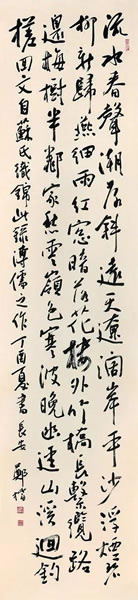 流水春聲潮落斜遠天遼闊岸平沙浮煙碧
柳新歸燕細雨紅窗暗落花樓外竹橋長繫纜路
邊梅樹半鄰家愁雲嶺色寒波晚幽遠山溪迴釣
槎回文自蘇氏織錦此錄溥儒之作丁酉夏書長安鄭